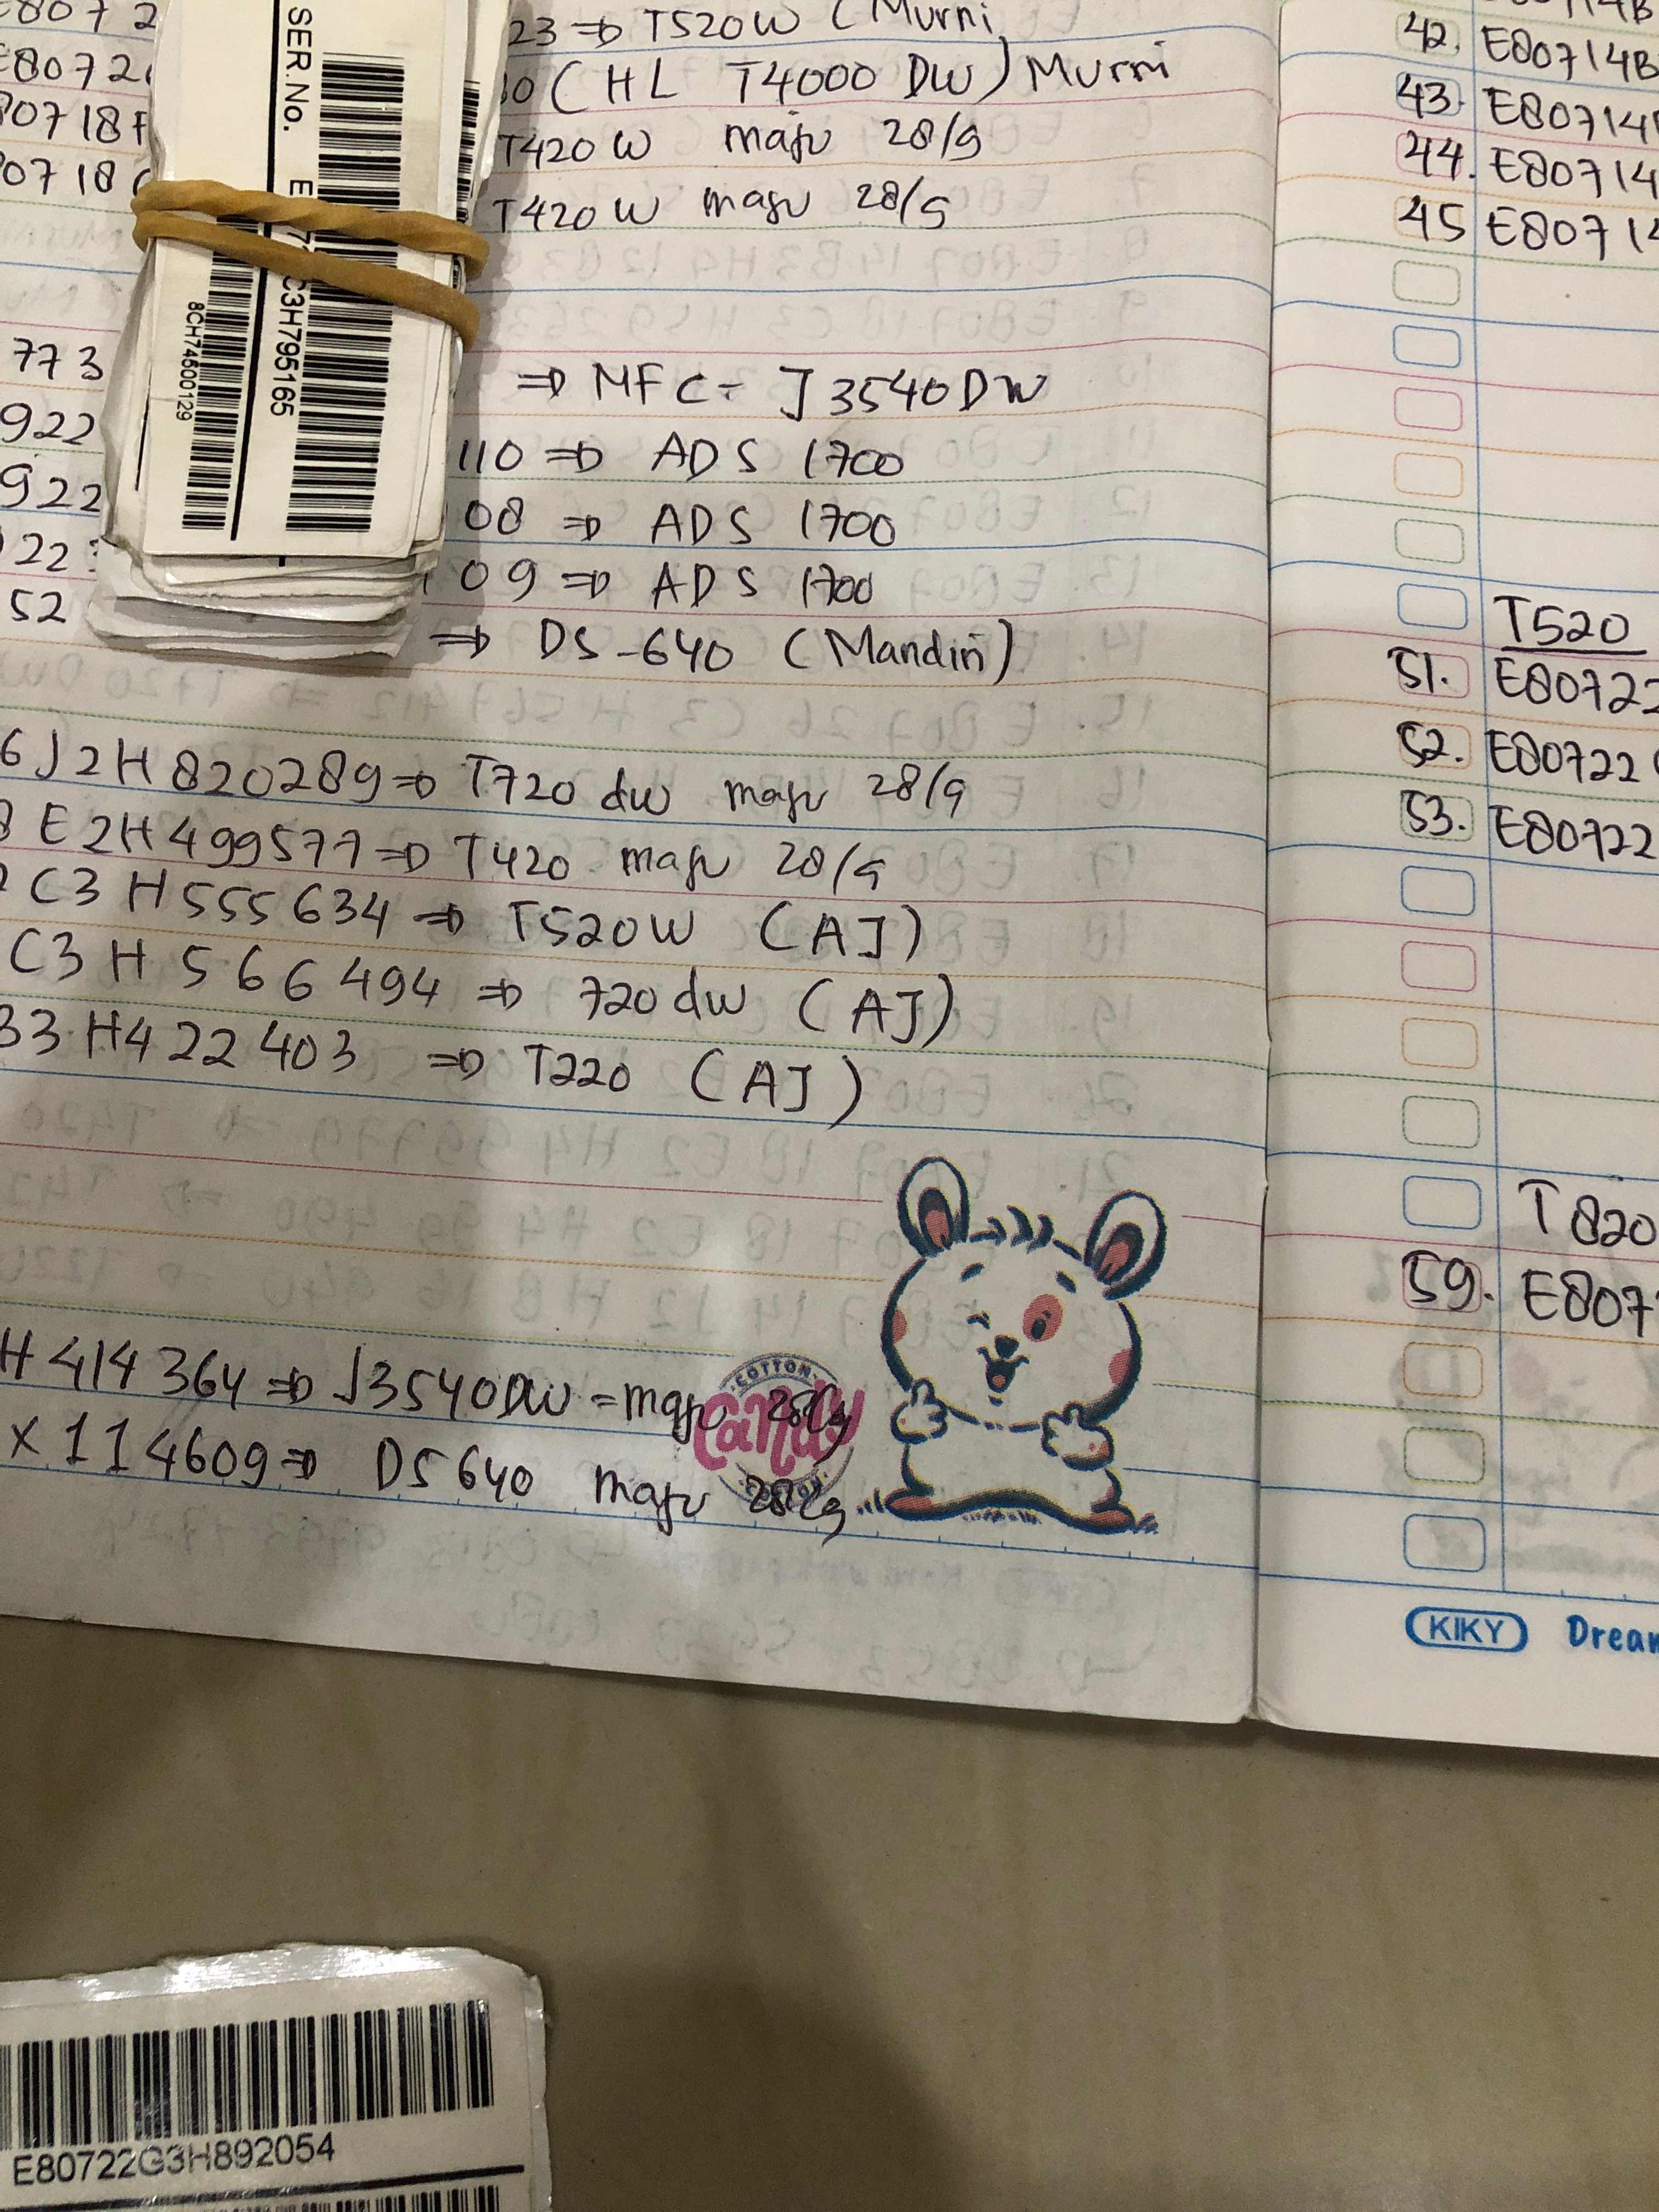 23 ⇒ T520W (Murni
(HL T4000 DW) Murni
T420W maju 28/9
T420W maju 28/9
773 ⇒ MFC- J3540DW
922 110 ⇒ ADS 1700
922 08 ⇒ ADS 1700
22 09 ⇒ ADS 1700
52 ⇒ DS-640 (Mandiri)
6J2H820289 ⇒ T720 dw maju 28/9
E2H499577 ⇒ T420 maju 28/9
C3H555634 ⇒ T520W (AJ)
C3H566494 ⇒ 720dw (AJ)
33H422403 ⇒ T220 (AJ)
H414364 ⇒ J3540DW = maju 28/9
X114609 ⇒ DS640 maju 28/9
COTTON
Candy
COTTON
SER.No.
C3H795165
8CH74500129
42. E80714B
43. E80714
44. E80714
45 E8071
T520
51. E80722
52. E80722
53. E80722
T820
59. E807
KIKY
E80722G3H892054